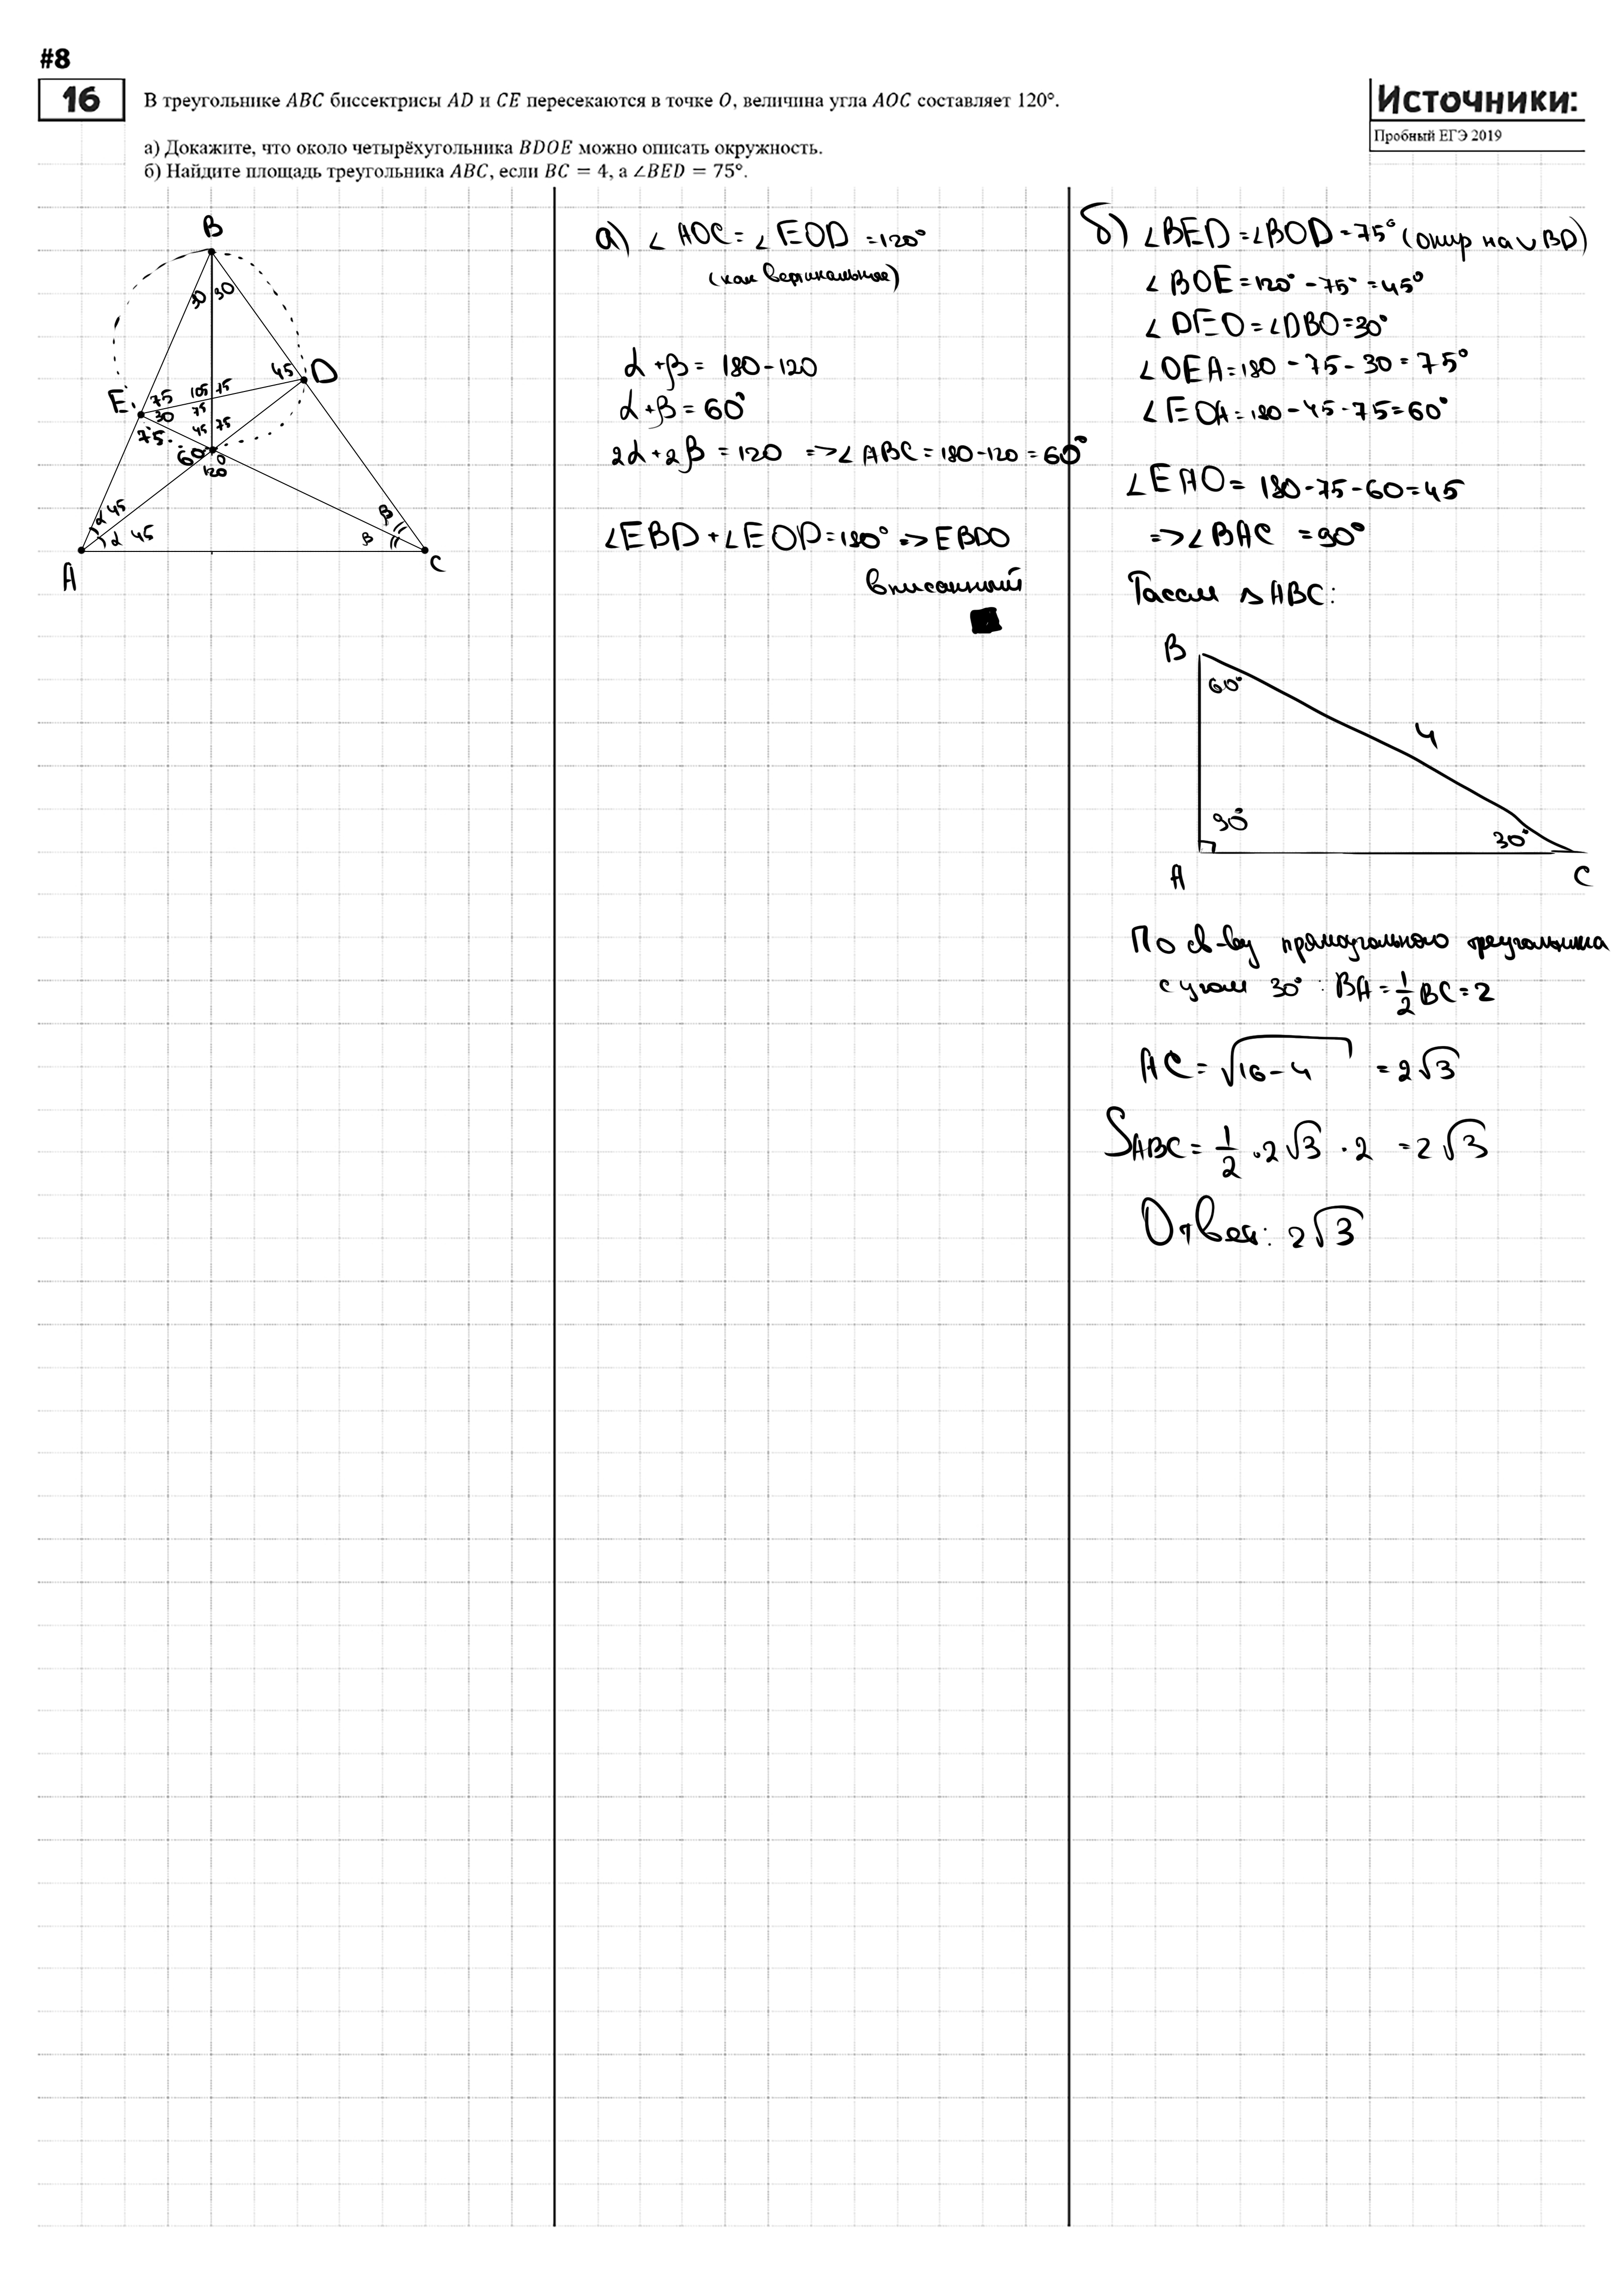 #8
16
В треугольнике ABC биссектрисы AD и CE пересекаются в точке O, величина угла AOC составляет 120°.
Источники:
Пробный ЕГЭ 2019
а) Докажите, что около четырёхугольника BDOE можно описать окружность.
б) Найдите площадь треугольника ABC, если BC = 4, а ∠BED = 75°.
B
30 30
45 D
E 75 105 75
30 75
75 45 75
60 O
120
α 45 β
α 45 β
A C
а) ∠AOC = ∠EOD = 120°
(как вертикальные)
α + β = 180 - 120
α + β = 60°
2α + 2β = 120 => ∠ABC = 180 - 120 = 60°
∠EBD + ∠EOD = 180° => EBDO
вписанный
б) ∠BED = ∠BOD = 75° (опир на ∪ BD)
∠BOE = 120° - 75° = 45°
∠DEO = ∠DBO = 30°
∠OEA = 180 - 75 - 30 = 75°
∠EOA = 180 - 45 - 75 = 60°
∠EAO = 180 - 75 - 60 = 45
=> ∠BAC = 90°
△ABC:
B
60°
4
90°
30°
A C
По св-ву прямоугольного треугольника
с углом 30° : BA = 1/2 BC = 2
AC = √16 - 4 = 2√3
SABC = 1/2 · 2√3 · 2 = 2√3
Ответ: 2√3